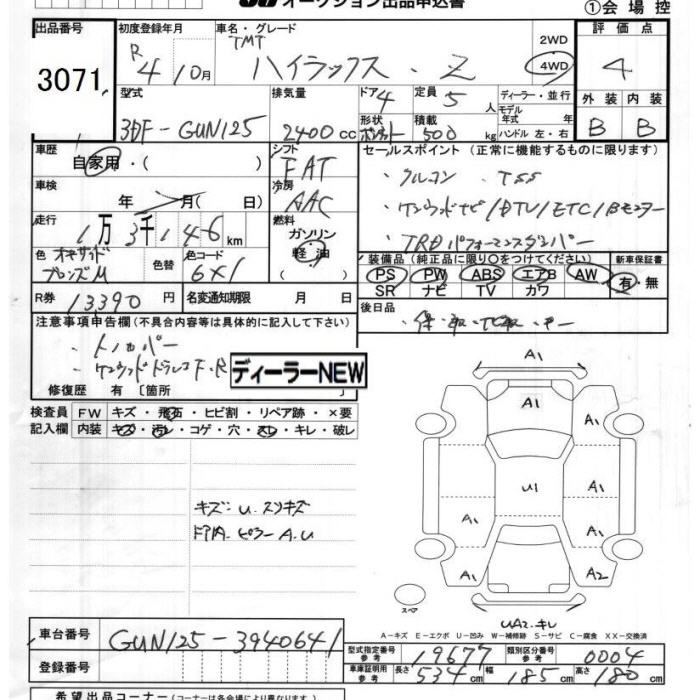 オークション出品申込書
①会場控
出品番号
3071
初度登録年月
R 4 10月
車名・グレード
TMT
ハイラックス . Z
2WD
4WD
評価点
4
型式
3DF-GUN125
排気量
2400cc
ドア 4
形状
定員 5人
積載 500kg
ディーラー・並行
モデル年式 年式
ハンドル 左・右
外装 内装
B B
車歴
自家用・( )
シフト
FAT
車検
年 月( 日)
冷房
AAC
走行
1万3千146km
燃料
ガソリン
軽油
色
ブロンズM
色替
色コード
6X1
R券 13390円
名変通知期限 月 日
セールスポイント (正常に機能するものに限ります)
・クルコン ・TSS
・ケンウッドナビ/DTV/ETC/Bモニター
・TRDパフォーマンスダンパー
装備品(純正品に限り○をつけてください)
PS PW ABS エアB AW
SR ナビ TV カワ
新車保証書
有・無
後日品
・保・取・ナビ取・キー
注意事項申告欄(不具合内容等は具体的に記入して下さい)
・トノカバー
・ケンウッドドラレコF.R
ディーラーNEW
修復歴 有〔箇所
検査員記入欄
FW キズ・飛石・ヒビ割・リペア跡・×要
内装 キズ・汚レ・コゲ・穴・スレ・キレ・破レ
キズ:U.スリキズ
ドア内.ピラーA.U
A1
A1
A1
A1
U1
A1
A1
A1
A1
A2
スペア
UA2.キレ
A－キズ E－エクボ U－凹み W－補修跡 S－サビ C－腐食 XX－交換済
車台番号
GUN125-3940641
登録番号
型式指定番号 参考 19677
類別区分番号 参考 0004
車庫証明用 参考 長さ 534cm 幅 185cm 高さ 180cm
希望出品コーナー(コーナーは各会場により異なります)